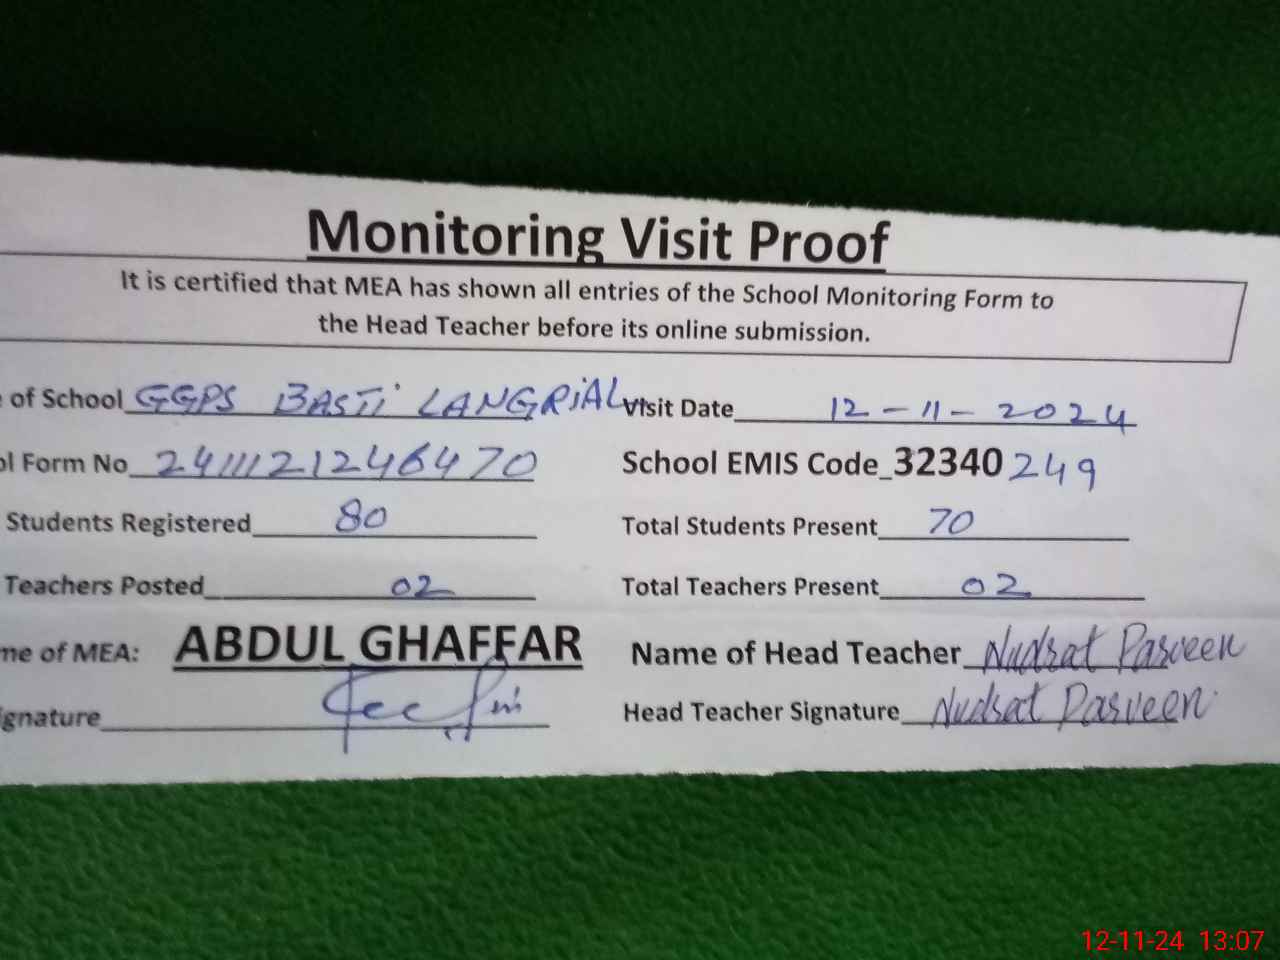 Monitoring Visit Proof
It is certified that MEA has shown all entries of the School Monitoring Form to
the Head Teacher before its online submission.
of School GGPS BASTI LANGRIAL Visit Date 12-11-2024
ol Form No 2411121246470 School EMIS Code_32340249
Students Registered 80 Total Students Present 70
Teachers Posted 02 Total Teachers Present 02
me of MEA: ABDUL GHAFFAR Name of Head Teacher Nudsat Parveen
ignature Head Teacher Signature Nudsat Parveen
12-11-24 13:07